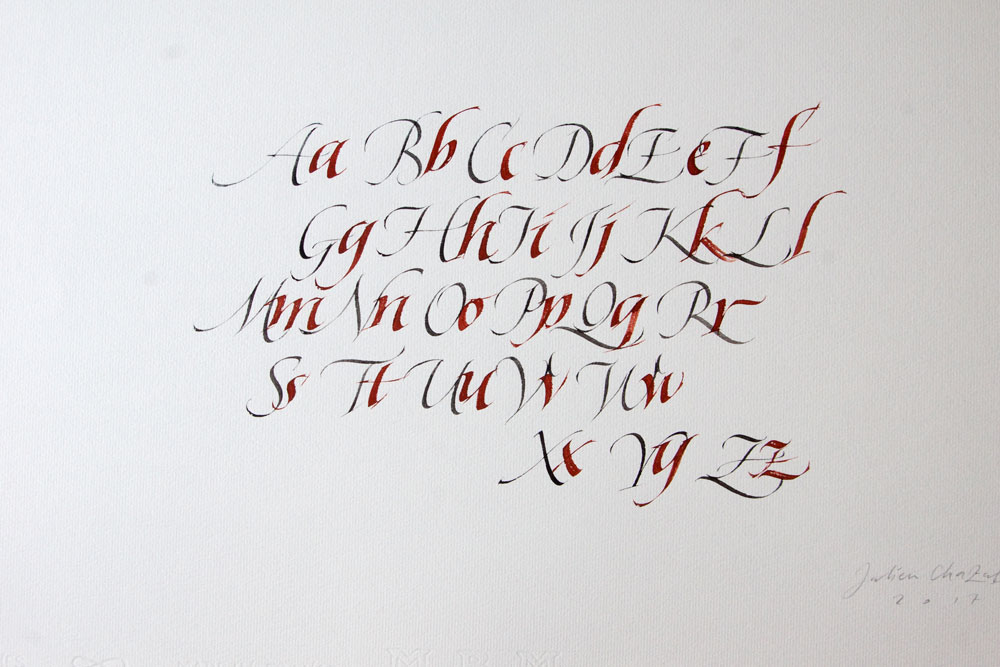 Aa Bb Cc Dd Ee Ff
Gg Hh Ii Jj Kk Ll
Mm Nn Oo Pp Qq Rr
Ss Tt Uu Vv Ww
Xx Yy Zz
Julien
2017